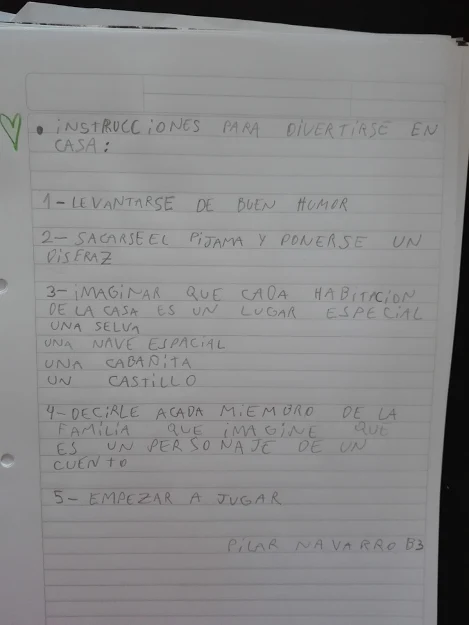 • INSTRUCCIONES PARA DIVERTIRSE EN
CASA:
1- LEVANTARSE DE BUEN HUMOR
2- SACARSE EL PIJAMA Y PONERSE UN
DISFRAZ
3- IMAGINAR QUE CADA HABITACION
DE LA CASA ES UN LUGAR ESPECIAL
UNA SELVA
UNA NAVE ESPACIAL
UNA CABAÑITA
UN CASTILLO
4- DECIRLE ACADA MIEMBRO DE LA
FAMILIA QUE IMAGINE QUE
ES UN PERSONAJE DE UN
CUENTO
5- EMPEZAR A JUGAR
PILAR NAVARRO B3